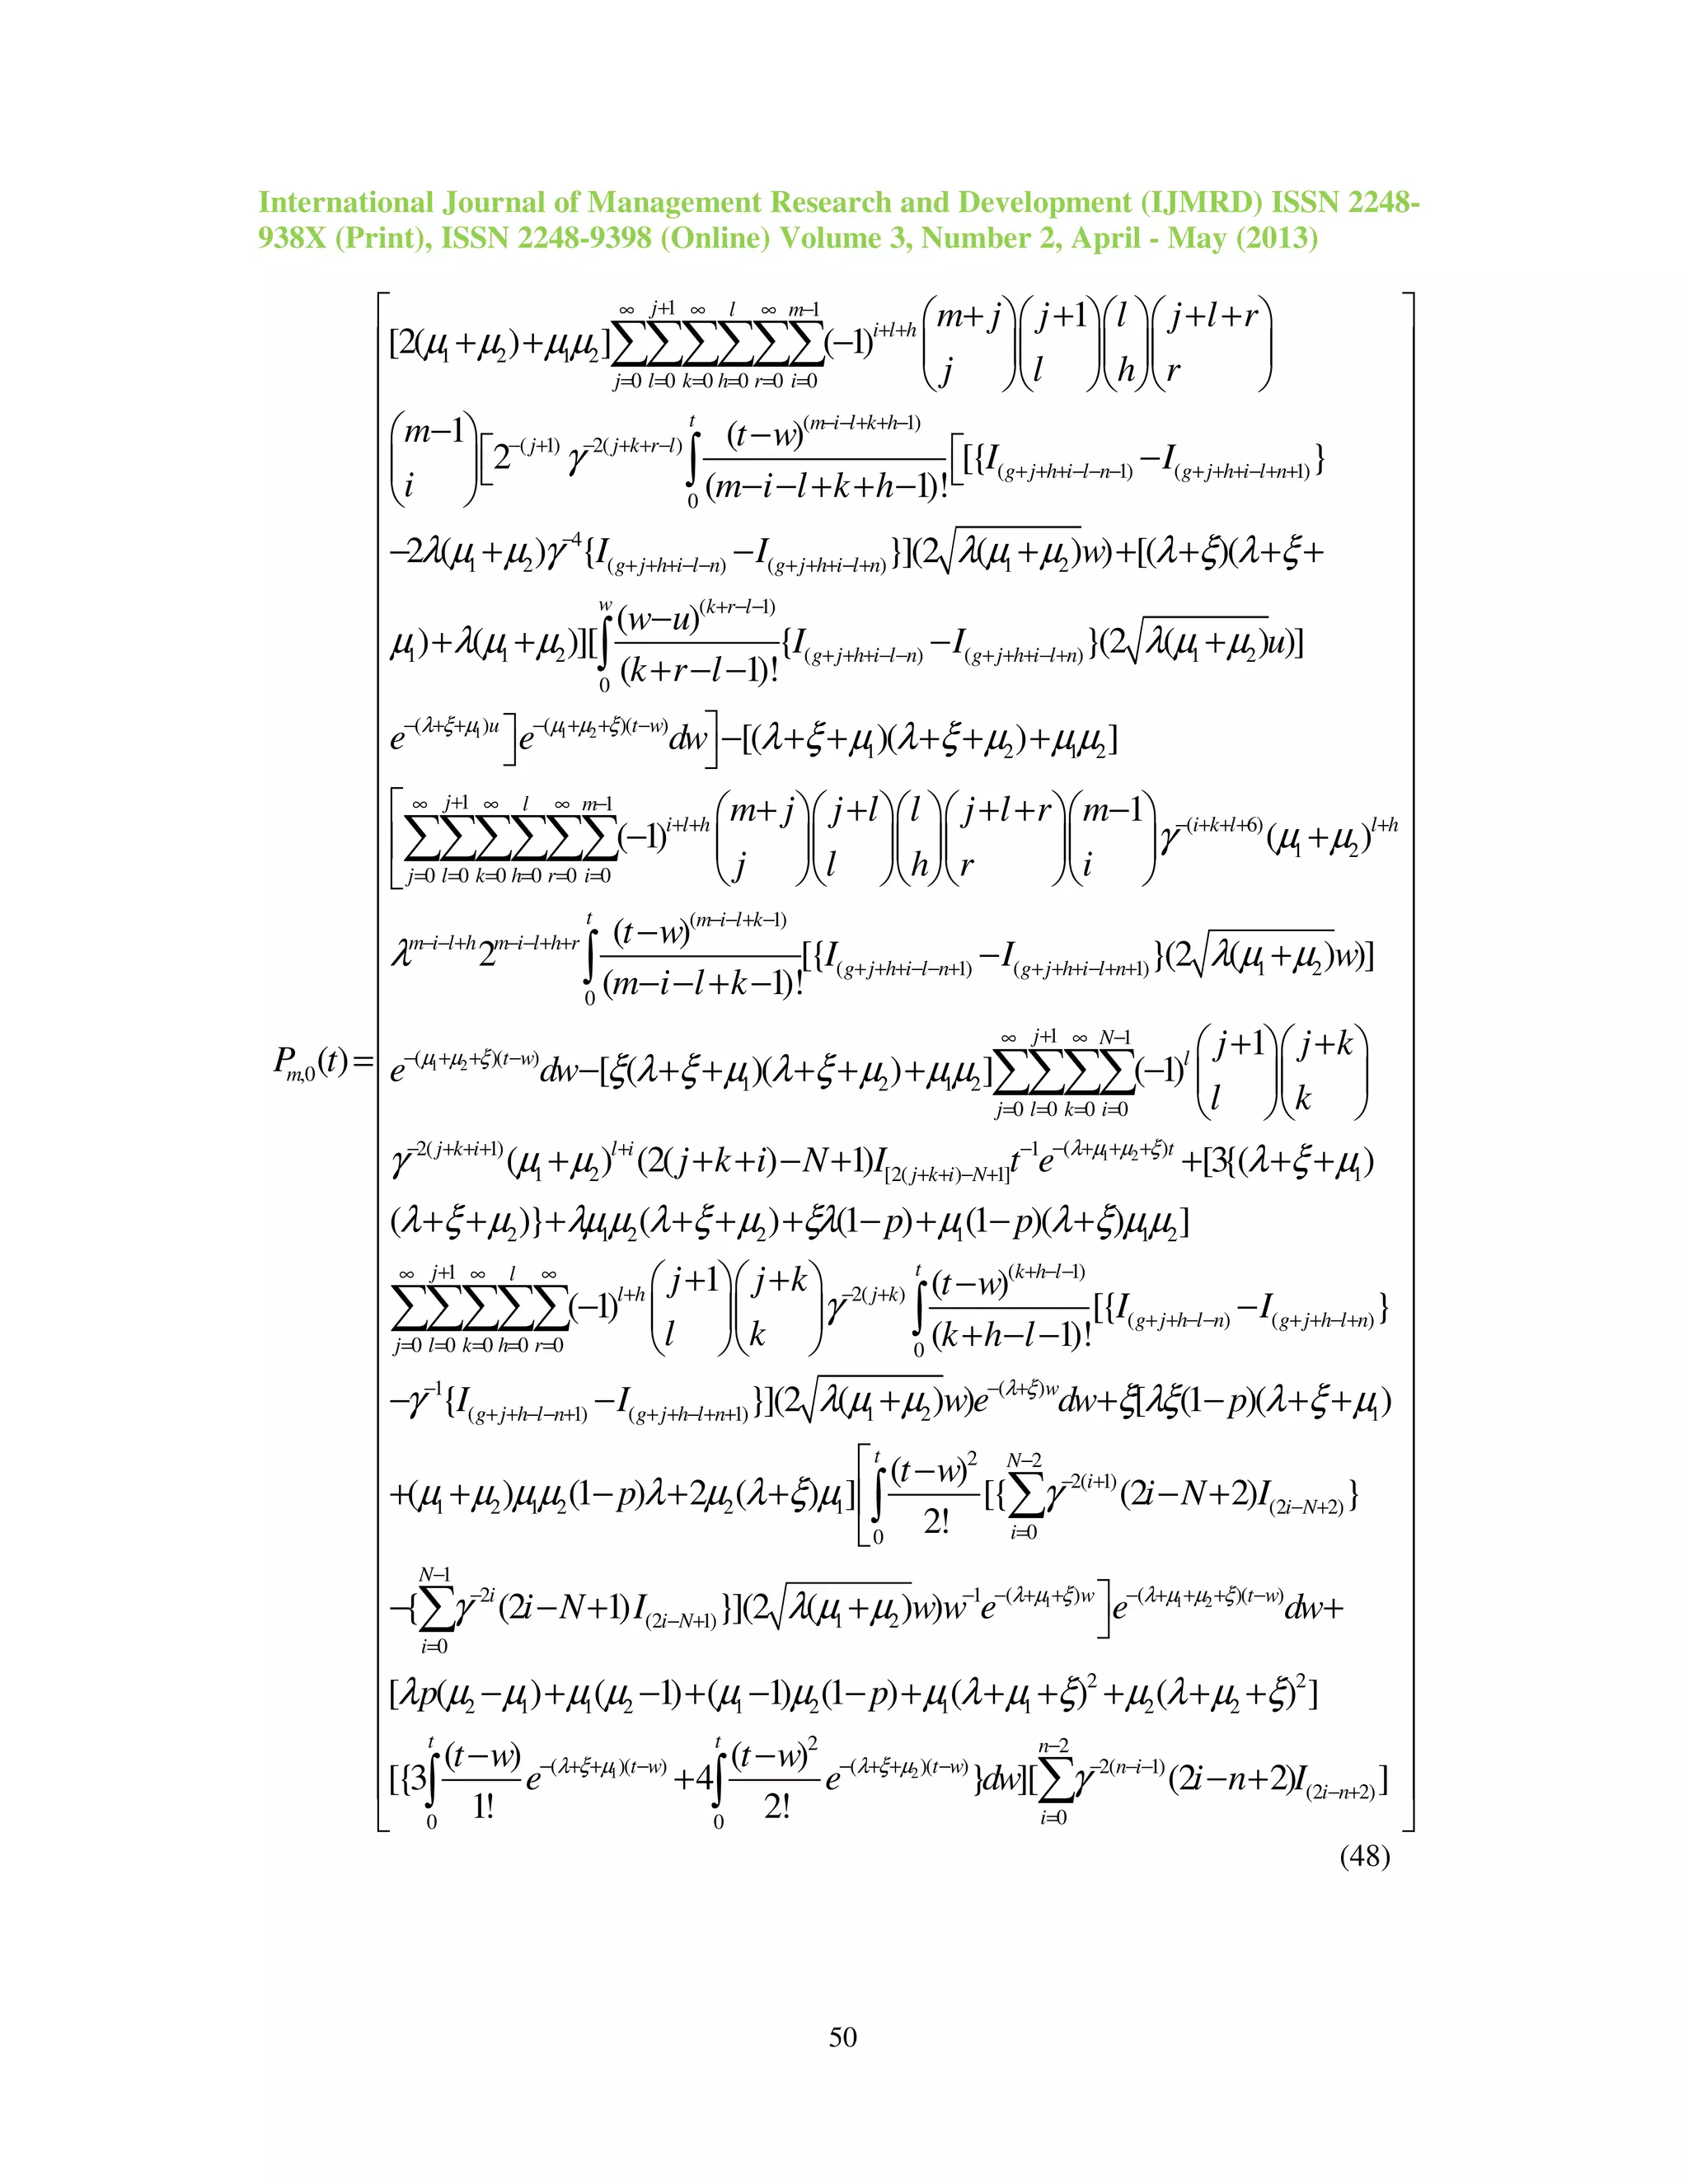 International Journal of Management Research and Development (IJMRD) ISSN 2248-
938X (Print), ISSN 2248-9398 (Online) Volume 3, Number 2, April - May (2013)
[2(μ₁+μ₂)+μ₁μ₂]∑_{j=0}^{∞}∑_{l=0}^{j+1}∑_{k=0}^{∞}∑_{h=0}^{l}∑_{r=0}^{∞}∑_{i=0}^{m-1}(-1)^{i+l+h} (m+j j)(j+1 l)(l h)(j+l+r r)
(m-1 i)[2^{-(j+1)} γ^{-2(j+k+r-l)} ∫_0^t (t-w)^{(m-i-l+k+h-1)}/(m-i-l+k+h-1)! [[{I_{(g+j+h+i-l-n-1)} - I_{(g+j+h+i-l+n+1)}}
-2λ(μ₁+μ₂)γ^{-4}{I_{(g+j+h+i-l-n)} - I_{(g+j+h+i-l+n)}}](2√λ(μ₁+μ₂)w)+[(λ+ξ)(λ+ξ+
μ₁)+λ(μ₁+μ₂)][∫_0^w (w-u)^{(k+r-l-1)}/(k+r-l-1)! {I_{(g+j+h+i-l-n)} - I_{(g+j+h+i-l+n)}}(2√λ(μ₁+μ₂)u)]
e^{-(λ+ξ+μ₁)u}]e^{-(μ₁+μ₂+ξ)(t-w)}dw]-[(λ+ξ+μ₁)(λ+ξ+μ₂)+μ₁μ₂]
[∑_{j=0}^{∞}∑_{l=0}^{j+1}∑_{k=0}^{∞}∑_{h=0}^{l}∑_{r=0}^{∞}∑_{i=0}^{m-1}(-1)^{i+l+h} (m+j j)(j+l l)(l h)(j+l+r r)(m-1 i)γ^{-(i+k+l+6)}(μ₁+μ₂)^{l+h}
λ^{m-i-l+h}2^{m-i-l+h+r} ∫_0^t (t-w)^{(m-i-l+k-1)}/(m-i-l+k-1)! [{I_{(g+j+h+i-l-n+1)} - I_{(g+j+h+i-l+n+1)}}(2√λ(μ₁+μ₂)w)]
P_{m,0}(t)= e^{-(μ₁+μ₂+ξ)(t-w)}dw-[ξ(λ+ξ+μ₁)(λ+ξ+μ₂)+μ₁μ₂]∑_{j=0}^{∞}∑_{l=0}^{j+1}∑_{k=0}^{∞}∑_{i=0}^{N-1}(-1)^l (j+1 l)(j+k k)
γ^{-2(j+k+i+1)}(μ₁+μ₂)^{l+i}(2(j+k+i)-N+1)I_{[2(j+k+i)-N+1]}t^{-1}e^{-(λ+μ₁+μ₂+ξ)t}+[3{(λ+ξ+μ₁)
(λ+ξ+μ₂)}+λμ₁μ₂(λ+ξ+μ₂)+ξλ(1-p)+μ₁(1-p)(λ+ξ)μ₁μ₂]
∑_{j=0}^{∞}∑_{l=0}^{j+1}∑_{k=0}^{∞}∑_{h=0}^{l}∑_{r=0}^{∞}(-1)^{l+h} (j+1 l)(j+k k)γ^{-2(j+k)} ∫_0^t (t-w)^{(k+h-l-1)}/(k+h-l-1)! [{I_{(g+j+h-l-n)} - I_{(g+j+h-l+n)}}
-γ^{-1}{I_{(g+j+h-l-n+1)} - I_{(g+j+h-l+n+1)}}](2√λ(μ₁+μ₂)w)e^{-(λ+ξ)w}dw+ξ[λξ(1-p)(λ+ξ+μ₁)
+(μ₁+μ₂)μ₁μ₂(1-p)λ+2μ₂(λ+ξ)μ₁][∫_0^t (t-w)²/2! [{∑_{i=0}^{N-2}γ^{-2(i+1)}(2i-N+2)I_{(2i-N+2)}}
-{∑_{i=0}^{N-1}γ^{-2i}(2i-N+1)I_{(2i-N+1)}}](2√λ(μ₁+μ₂)w)w^{-1}e^{-(λ+μ₁+ξ)w}]e^{-(λ+μ₁+μ₂+ξ)(t-w)}dw+
[λp(μ₂-μ₁)+μ₁(μ₂-1)+(μ₁-1)μ₂(1-p)+μ₁(λ+μ₁+ξ)²+μ₂(λ+μ₂+ξ)²]
[{3∫_0^t (t-w)/1! e^{-(λ+ξ+μ₁)(t-w)}+4∫_0^t (t-w)²/2! e^{-(λ+ξ+μ₂)(t-w)}}dw][∑_{i=0}^{n-2}γ^{-2(n-i-1)}(2i-n+2)I_{(2i-n+2)}]
(48)
50